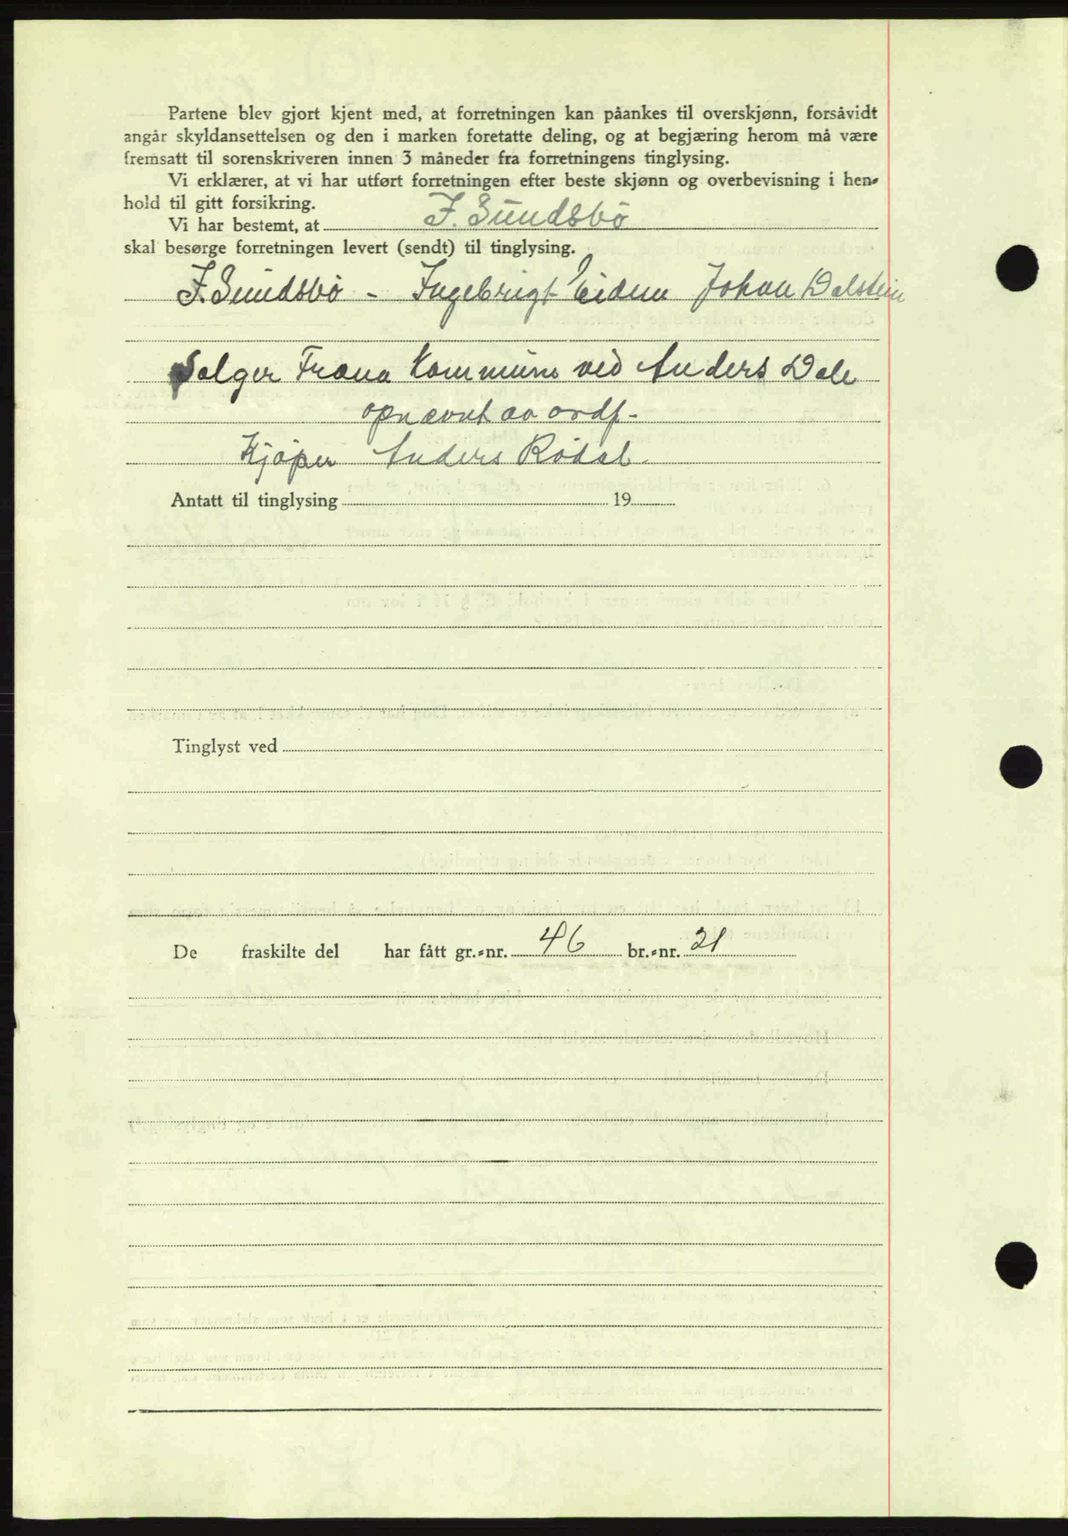 Partene blev gjort kjent med, at forretningen kan påankes til overskjønn, forsåvidt
angår skyldansettelsen og den i marken foretatte deling, og at begjæring herom må være
fremsatt til sorenskriveren innen 3 måneder fra forretningens tinglysing.
Vi erklærer, at vi har utført forretningen efter beste skjønn og overbevisning i hen-
hold til gitt forsikring.
Vi har bestemt, at J. Sundsbö
skal besørge forretningen levert (sendt) til tinglysing.
J. Sundsbö - Ingebrigt Eiden Johan Dalsten
Selger Fræna Kommune ved Anders Dale
opnævnt av ordf.
Kjöper Anders Rödal.
Antatt til tinglysing 19
Tinglyst ved
De fraskilte del har fått gr.-nr. 46 br.-nr. 21